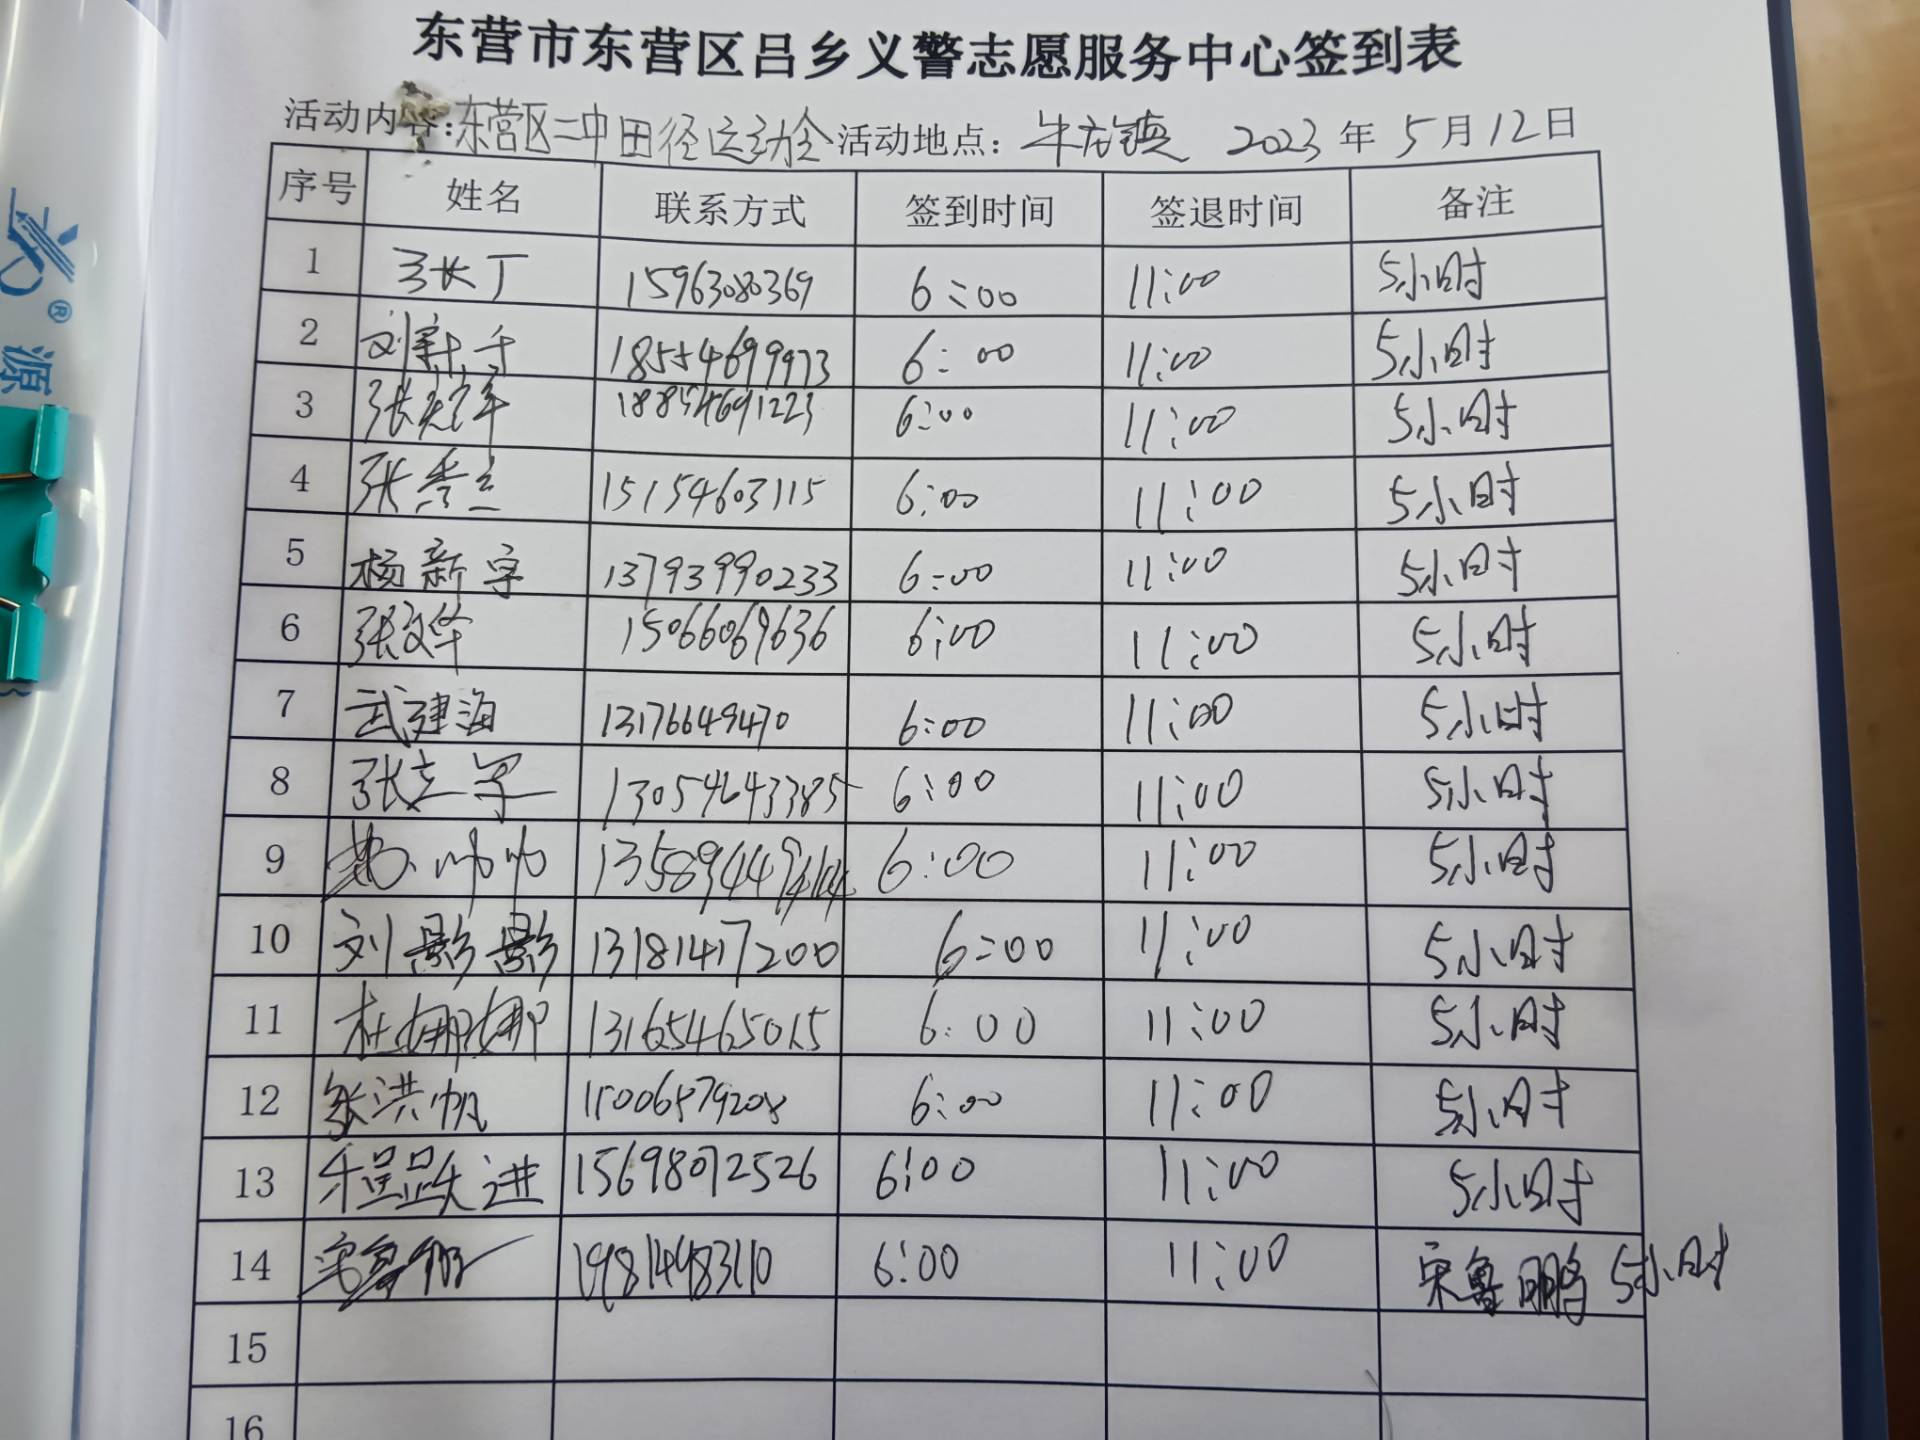 东营市东营区吕乡义警志愿服务中心签到表
活动内容:东营区二中田径运动会 活动地点: 牛庄镇 2023 年 5 月 12 日
序号 姓名 联系方式 签到时间 签退时间 备注
1 15963080369 6:00 11:00 5小时
2 刘 18554699973 6:00 11:00 5小时
3 张 18854691223 6:00 11:00 5小时
4 张秀兰 15154603115 6:00 11:00 5小时
5 杨新字 13793990233 6:00 11:00 5小时
6 张文华 15066069636 6:00 11:00 5小时
7 武建海 13176649470 6:00 11:00 5小时
8 张立军 13054643385 6:00 11:00 5小时
9 6:00 11:00 5小时
10 刘影影 13181417200 6:00 11:00 5小时
11 杜娜娜 13165465015 6:00 11:00 5小时
12 张洪帆 15006879208 6:00 11:00 5小时
13 程跃进 15698072526 6:00 11:00 5小时
14 宋鲁鹏 19814483110 6:00 11:00 宋鲁鹏 5小时
15
16
源
®